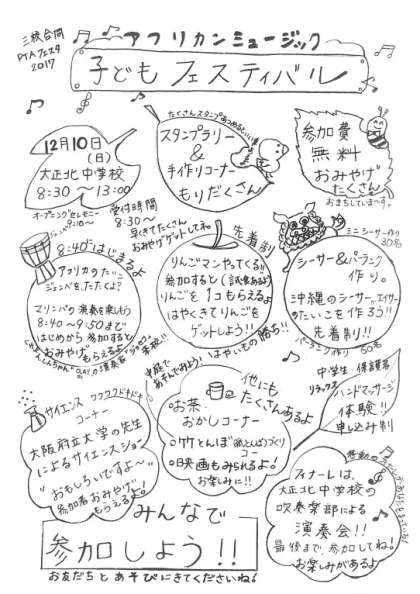 三校合同
PTAフェスタ
2017
アフリカンミュージック
子どもフェスティバル
12月10日
(日)
大正北中学校
8:30～13:00
オープニングセレモニー
受付時間
8:30～
早くきてたくさん
おみやげゲットしてネ
たくさんスタンプあつめるといい
スタンプラリー
&
手作りコーナー
もりだくさん
参加費
無料
おみやげ
たくさん
おまちしていまーす。
8:40～はじまるよ
アフリカのたいこ
ジェンベを、たたくよ?
マリンバの演奏を楽しもう
8:40～9:50まで
はじめから参加すると
おみやげもらえるよ!
先着制
りんごマンやってくる!!
参加すると(試食あるよ)
りんごを1コもらえるよ
はやくきてりんごを
ゲットしよう!!
はやいもの勝ち!!
ミニシーサー作り
30名
シーサー&パーランク
作り。
沖縄のシーサー、エイサー
のたいこを作ろう!!
先着制!!
パーランク作り 50名
サイエンス ワクワクドキドキ
コーナー
大阪府立大学の先生
によるサイエンスショー
おもしろいですよ～
参加者おみやげ
もらえるよ!
中庭で
あそんでみよう!
他にも
たくさんあるよ
・お茶
おかしコーナー
・竹とんぼ
・映画もみられるよ!
お楽しみに!!
中学生・保護者
リラックス
ハンドマッサージ
体験!!
申し込み制
フィナーレは、
大正北中学校の
吹奏楽部による
演奏会!!
最後まで、参加してね!
お楽しみがあるよ
みんなで
参加しよう!!
お友だちとあそびにきてくださいね!